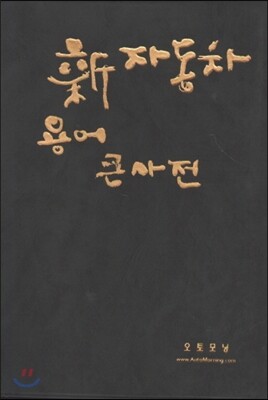 新 자동차
용어
큰사전
오토모닝
www.AutoMorning.com